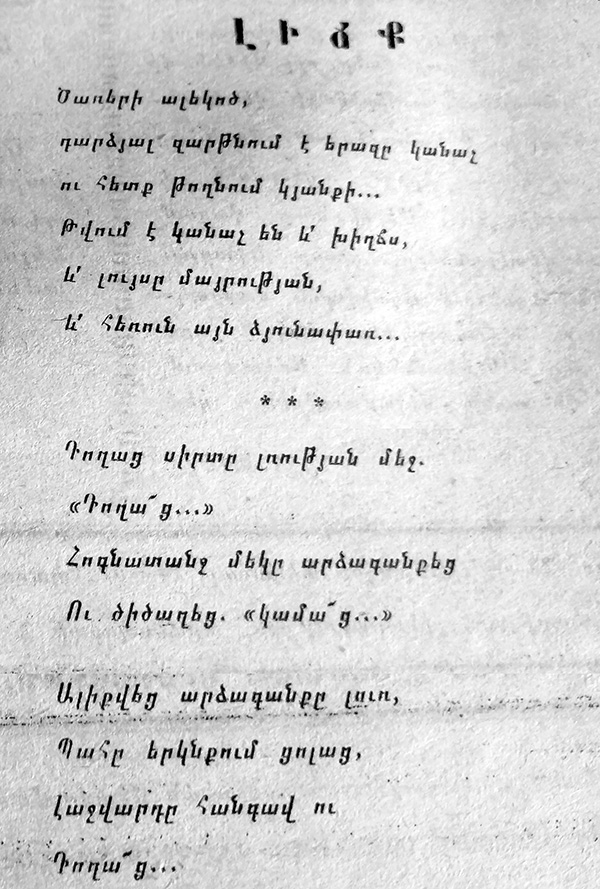 ԼԻՃՔ
Ծառերի ալեկոծ,
դարձյալ զարթնում է երազը կանաչ
ու հետք թողնում կյանքի...
Թվում է կանաչ են և՛ խիղճս,
և՛ լույսը մայրության,
և՛ հեռուն այն ձյունափառ...
* * *
Դողաց սիրտը լռության մեջ.
«Դողա՜ց...»
Հոգնատանջ մեկը արձագանքեց
Ու ծիծաղեց. «կամա՜ց...»
Ալիքվեց արձագանքը լուռ,
Պահը երկնքում ցոլաց,
Լաջվարդը հանգավ ու
Դողա՜ց...